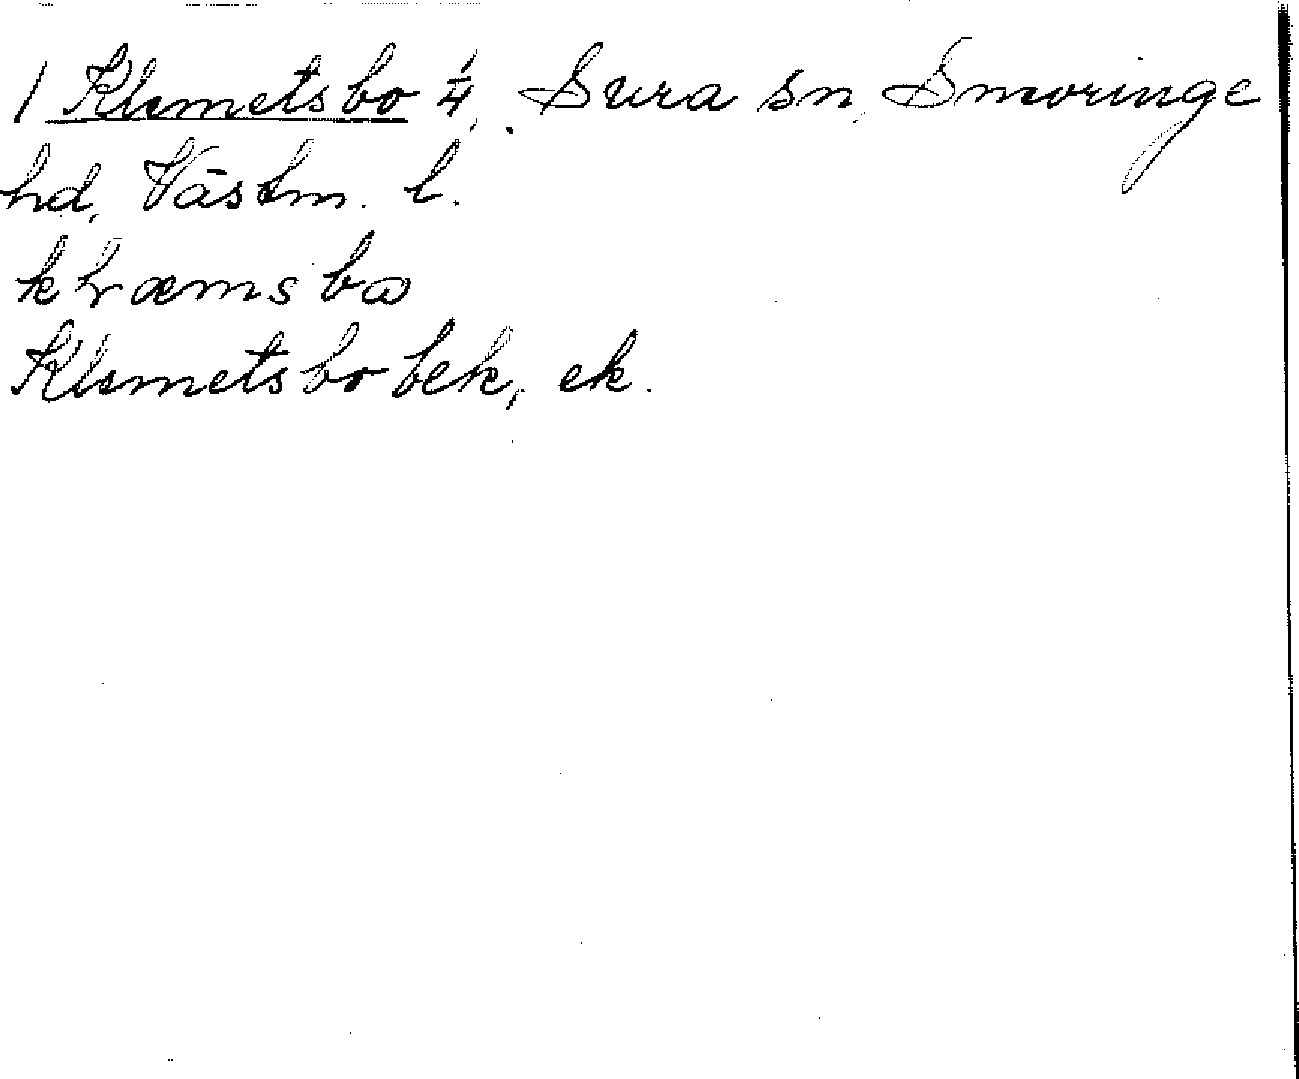 1 Klemetsbo 1/4, Sura sn, Snevringe
hd, Västm. l.
klæmsbω
Klemetsbo bek, ek.